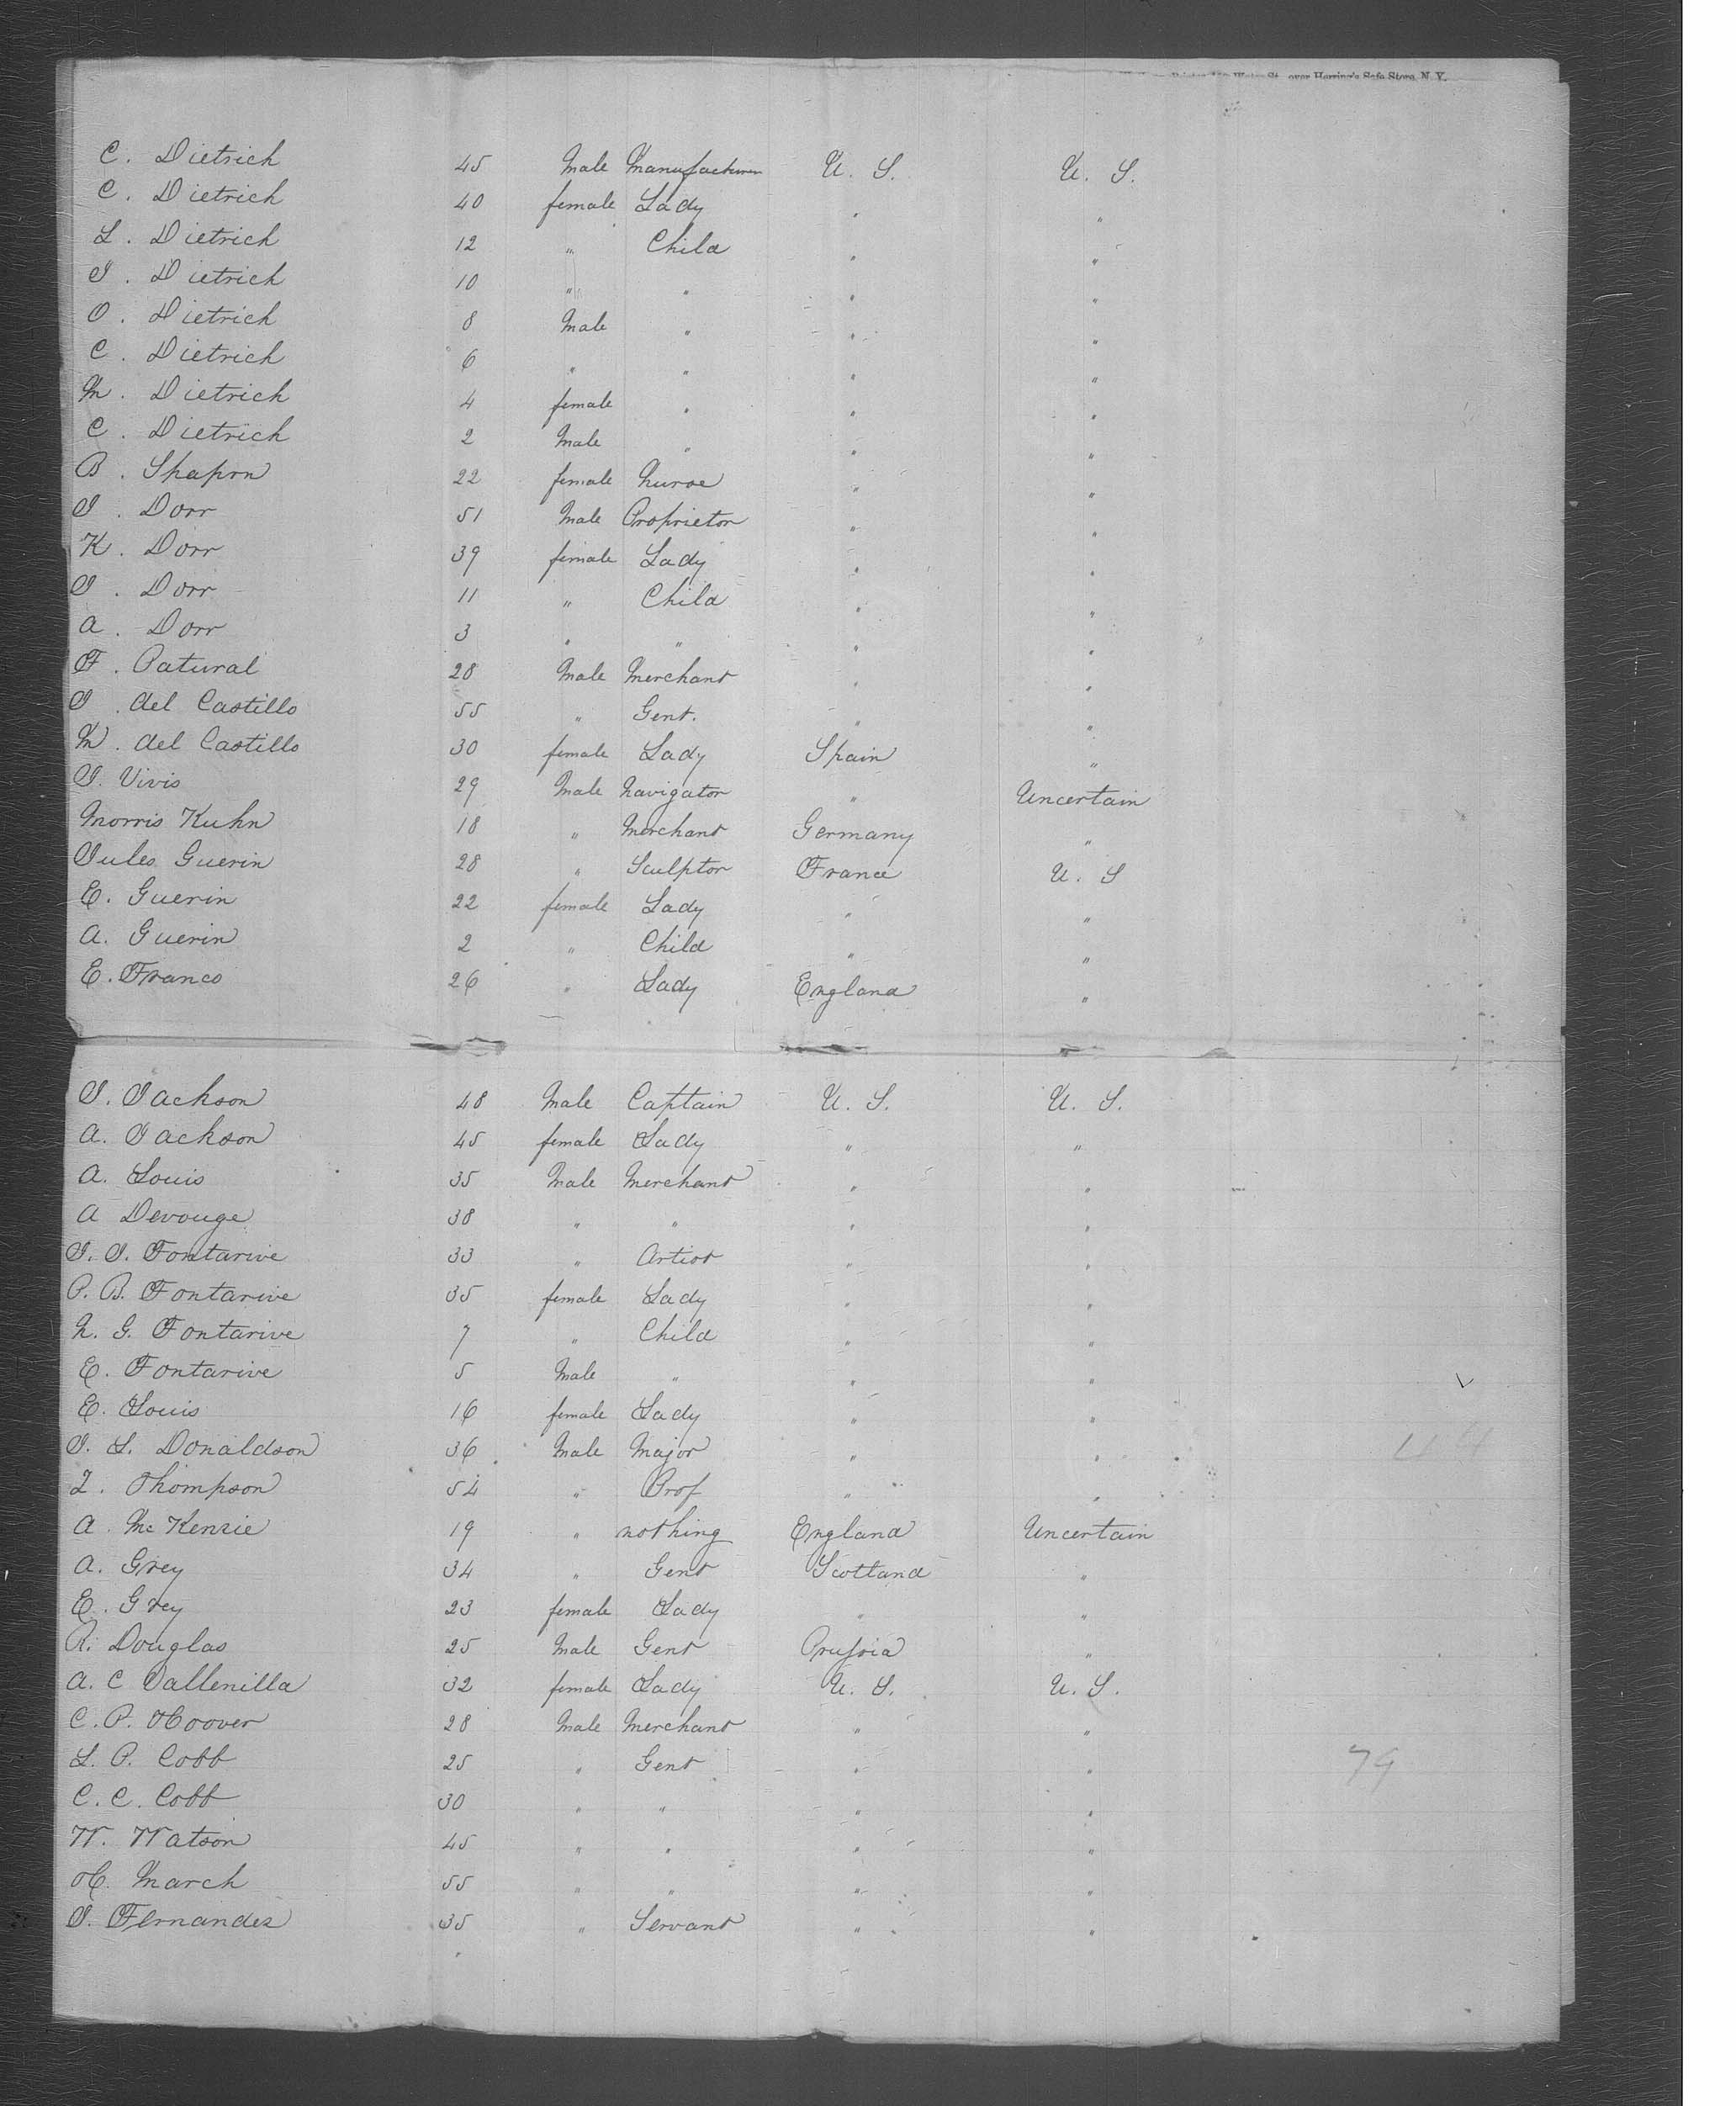 St. over Herring's Safe Store, N. Y.
C. Dietrich 45 Male Manufacturer U. S. U. S.
C. Dietrich 40 female Lady " "
L. Dietrich 12 " Child " "
J. Dietrich 10 " " " "
O. Dietrich 8 Male " " "
C. Dietrich 6 " " " "
M. Dietrich 4 female " " "
C. Dietrich 2 Male " " "
B. Shaprn 22 female Nurse " "
J. Dorr 51 Male Proprietor " "
K. Dorr 39 female Lady " "
J. Dorr 11 " Child " "
A. Dorr 3 " " " "
F. Patural 28 Male Merchant " "
J. del Castillo 55 " Gent. " "
M. del Castillo 30 female Lady Spain "
J. Vivis 29 Male Navigator " Uncertain
Morris Kuhn 18 " Merchant Germany "
Jules Guerin 28 " Sculptor France U. S
E. Guerin 22 female Lady " "
A. Guerin 2 " Child " "
E. Franco 26 " Lady England "
J. Jackson 48 Male Captain U. S. U. S.
A. Jackson 45 female Lady " "
A. Louis 35 Male Merchant " "
A Devouge 38 " " " "
J. J. Fontarive 33 " Artist " "
P. B. Fontarive 35 female Lady " "
N. G. Fontarive 7 " Child " "
E. Fontarive 5 Male " " "
E. Louis 16 female Lady " "
J. L. Donaldson 36 Male Major " "
Z. Thompson 54 " Prof " "
A. McKenzie 19 " nothing England Uncertain
A. Grey 34 " Gent Scotland "
E. Grey 23 female Lady " "
R. Douglas 25 Male Gent Prussia "
A. C Vallenilla 32 female Lady U. S. U. S.
C. P. Hoover 28 Male Merchant " "
L. P. Cobb 25 " Gent " " 79
C. C. Cobb 30 " " " "
W. Watson 45 " " " "
H. March 55 " " " "
J. Fernandez 35 " Servant " "